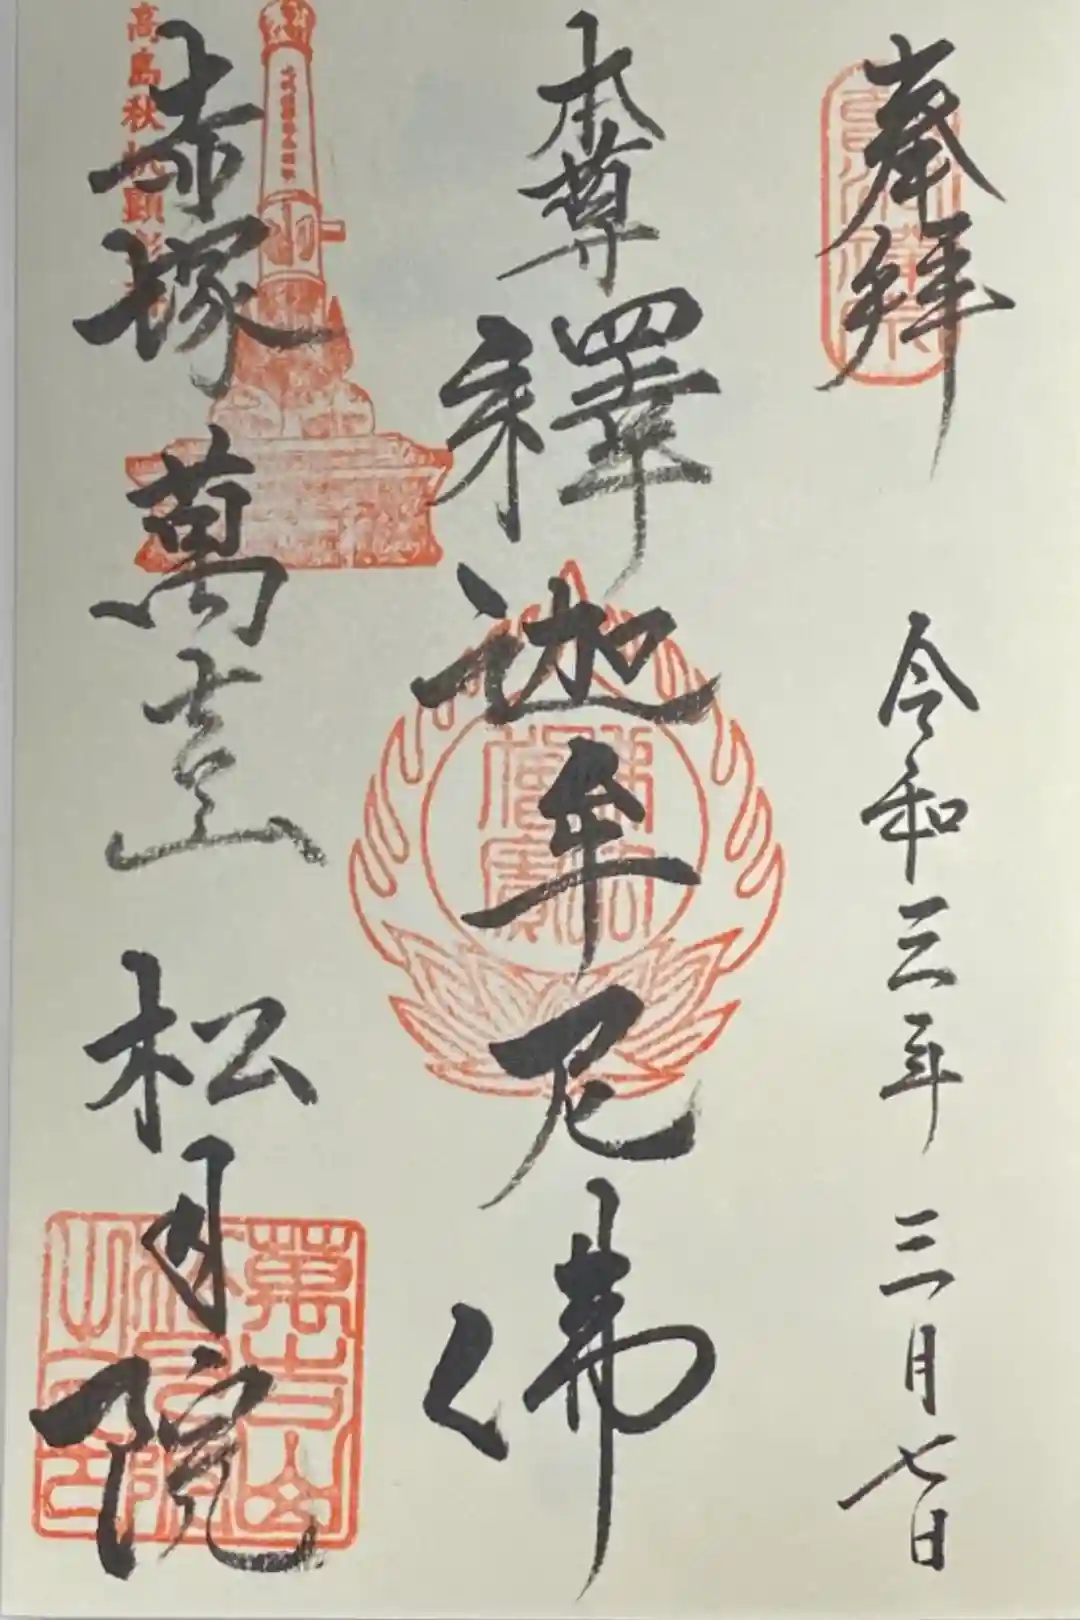 奉拜
令和三年 三月七日
本尊
釋迦牟尼佛
赤塚 萬吉山 松月院
高島秋帆顕彰碑
佛法
僧寳
萬吉山
松月院